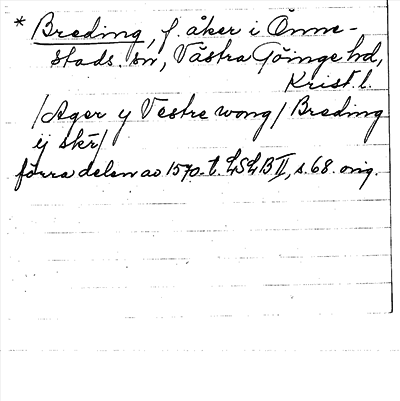 * Breding, f. åker i Önne-
stads sn, Västra Göinge hd,
Krist. l.
/Ager y Vestre wong/ Breding
ij skr/
förra delen av 1570-t. LSLB II, s. 68. orig.